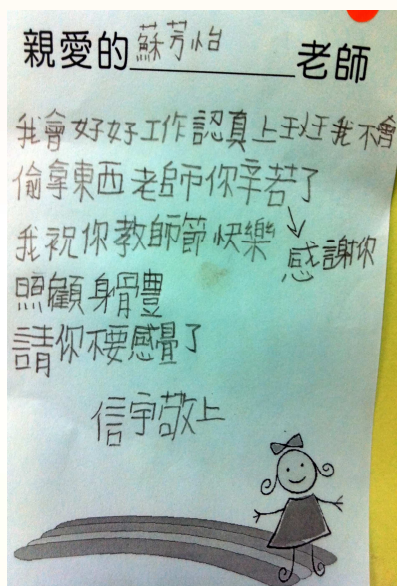 親愛的蘇芳怡老師
我會好好工作認真上班我不會
偷拿東西老師你辛苦了
我祝你教師節快樂 感謝你
照顧身體
請你不要感覺了
信宇敬上